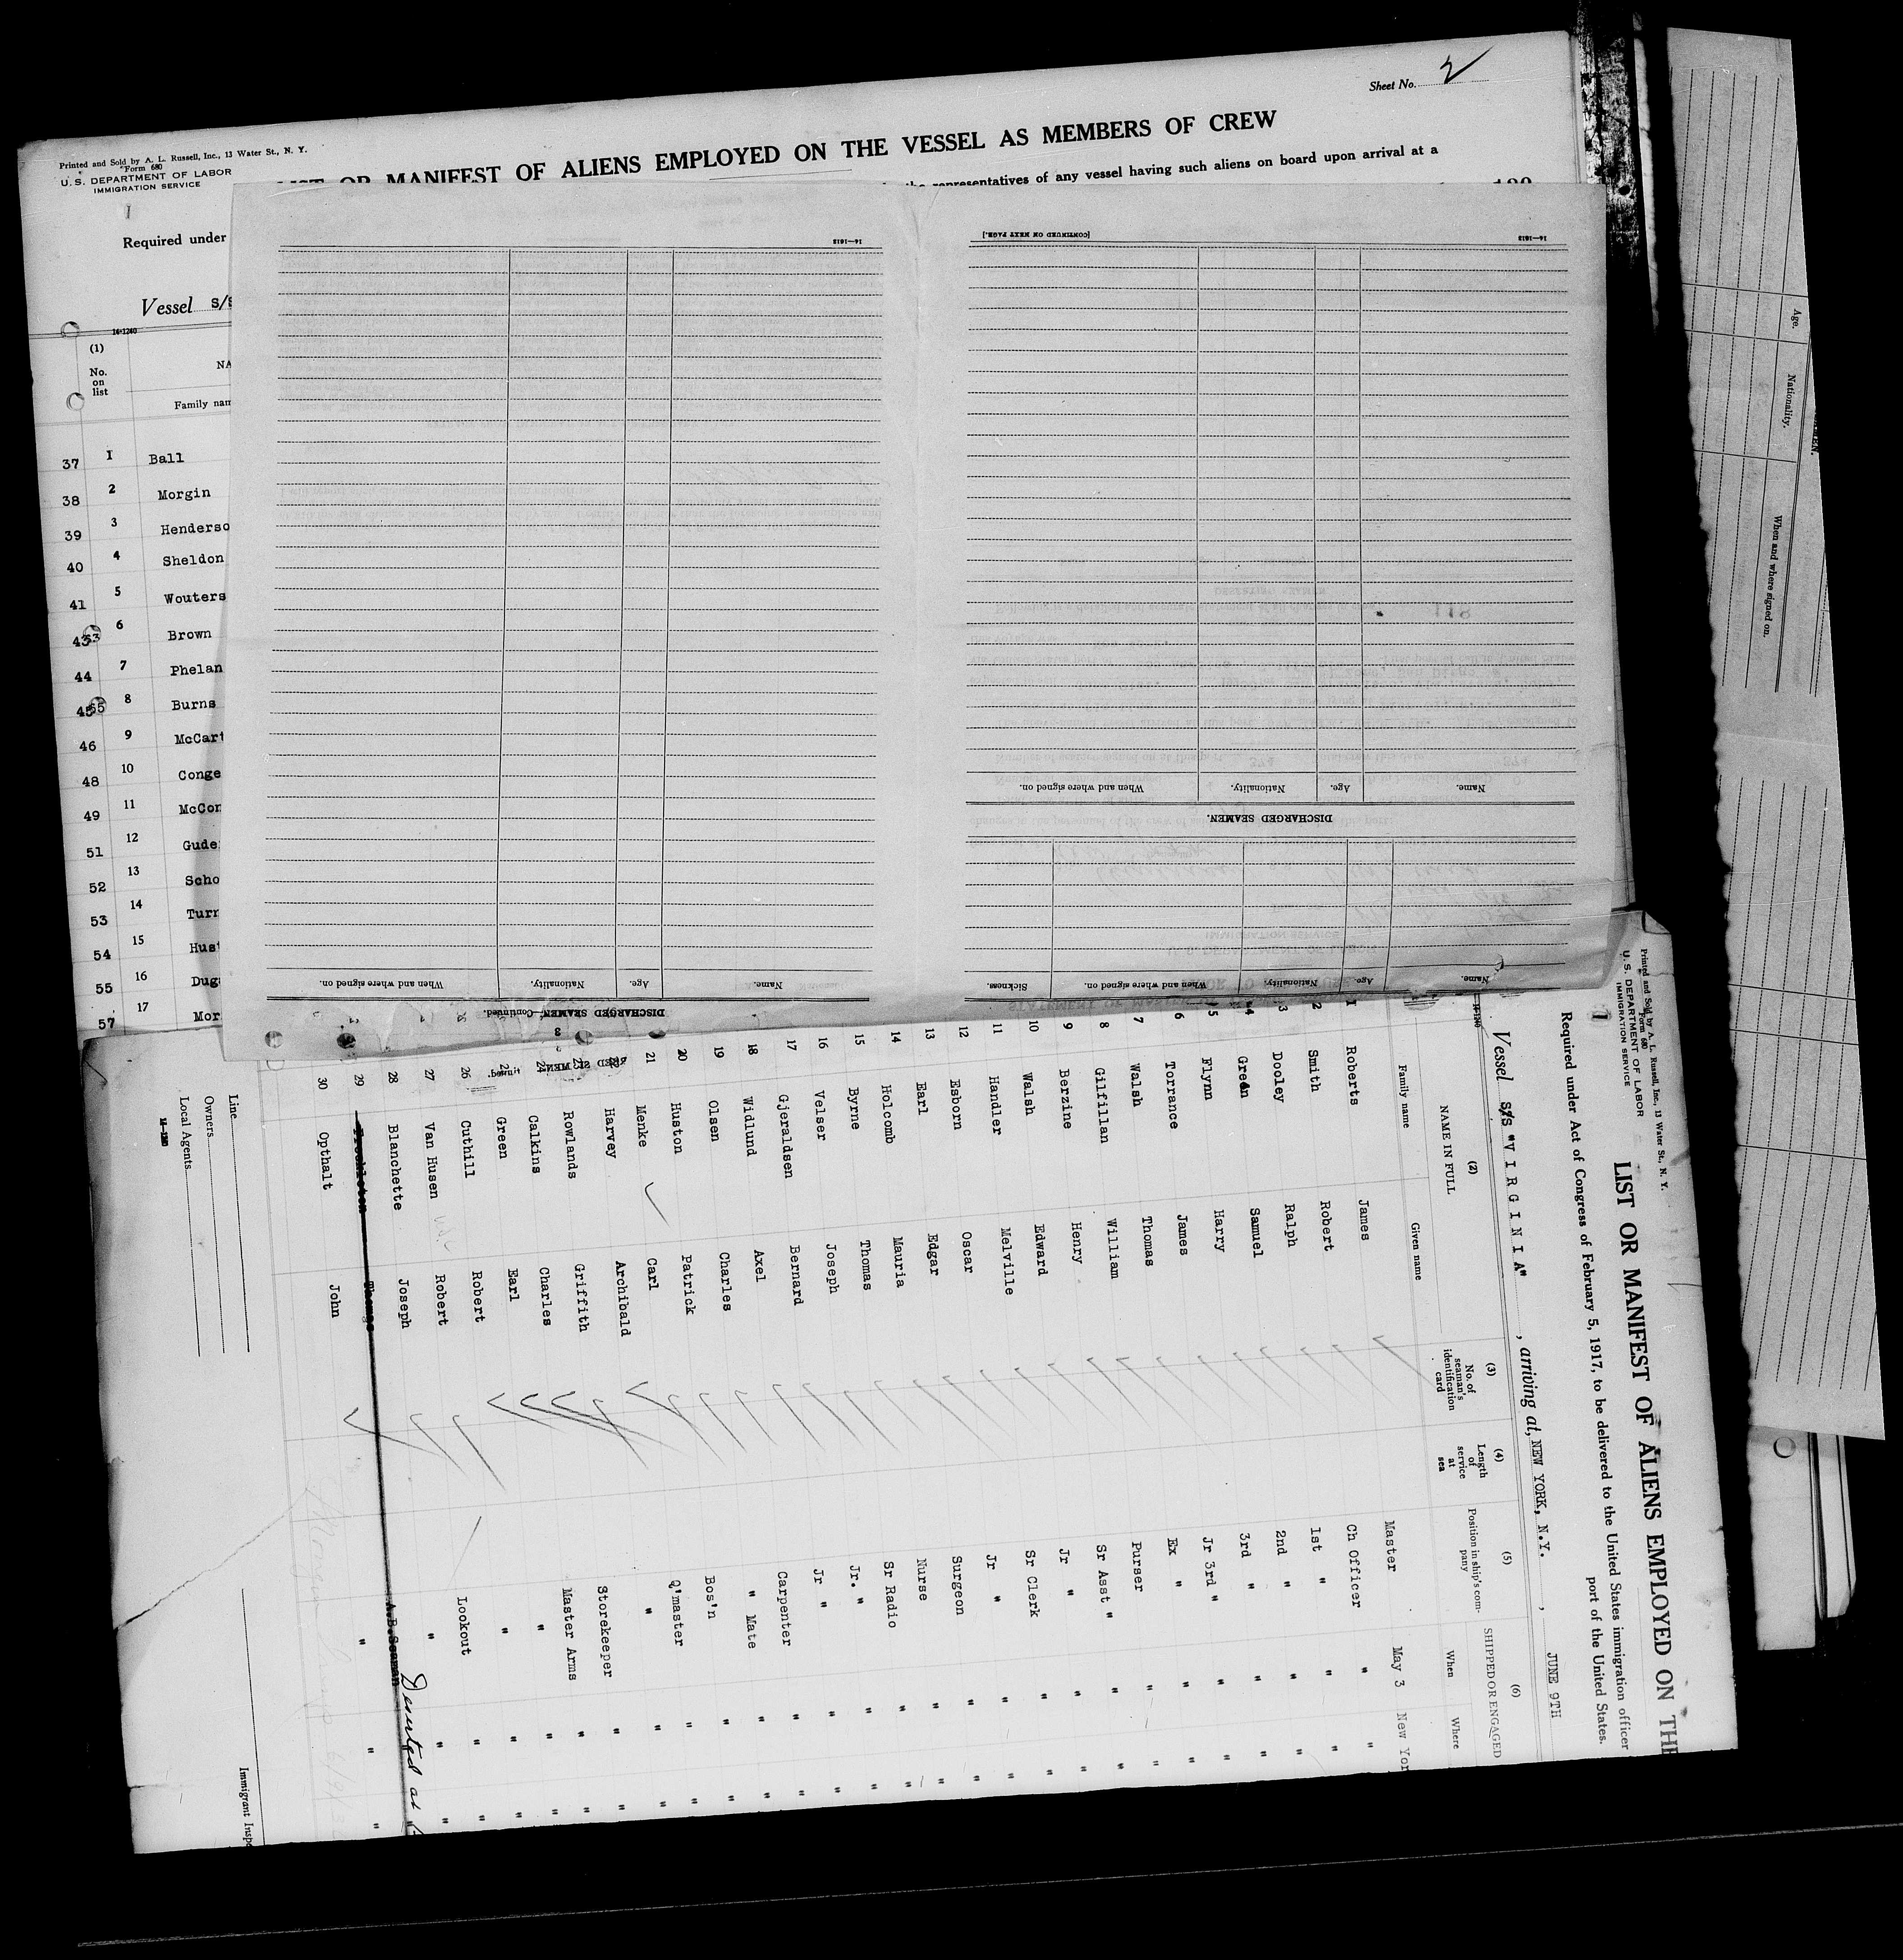 Sheet No. 2
Printed and Sold by A. L. Russell, Inc., 13 Water St., N. Y.
Form 680
U. S. DEPARTMENT OF LABOR
IMMIGRATION SERVICE
OR MANIFEST OF ALIENS EMPLOYED ON THE VESSEL AS MEMBERS OF CREW
representatives of any vessel having such aliens on board upon arrival at a
Required under
Vessel S/S
14-1240
(1)
No. on list
Family nam
37 1 Ball
38 2 Morgin
39 3 Henderso
40 4 Sheldon
41 5 Wouters
43 6 Brown
44 7 Phelan
45 8 Burns
46 9 McCart
48 10 Conge
49 11 McCon
51 12 Gude
52 13 Scho
53 14 Turn
54 15 Hust
55 16 Dug
57 17 Mor
14—1613
[CONTINUED ON NEXT PAGE.]
14—1613
Name. Age. Nationality. When and where signed on.
DISCHARGED SEAMEN.
Name. Age. Nationality. When and where signed on. Sickness.
Name. Age. Nationality. When and where signed on.
DISCHARGED SEAMEN.—Continued.
3
Age. Nationality. When and where signed on.
Printed and Sold by A. L. Russell, Inc., 13 Water St., N. Y.
Form 680
U. S. DEPARTMENT OF LABOR
IMMIGRATION SERVICE
1
LIST OR MANIFEST OF ALIENS EMPLOYED ON THE
Required under Act of Congress of February 5, 1917, to be delivered to the United States immigration officer
port of the United States.
Vessel S/S "V I R G I N I A", arriving at, NEW YORK, N.Y., JUNE 9TH
14-1240
(2) (3) (4) (5) (6)
NAME IN FULL No. of seaman's identification card Length of service at sea Position in ship's company SHIPPED OR ENGAGED
Family name Given name When Where
Master May 3 New Yor
1 Roberts James Ch Officer " "
2 Smith Robert 1st " " "
3 Dooley Ralph 2nd " " "
4 Green Samuel 3rd " " "
5 Flynn Harry Jr 3rd " " "
6 Torrance James Ex " " "
7 Walsh Thomas Purser " "
8 Gilfillan William Sr Asst " " "
9 Berzine Henry Jr " " "
10 Walsh Edward Sr Clerk " "
11 Handler Melville Jr " " "
12 Esborn Oscar Surgeon " "
13 Earl Edgar Nurse " "
14 Holcomb Mauria Sr Radio " "
15 Byrne Thomas Jr. " " "
16 Velser Joseph Jr " " "
17 Gjeraldsen Bernard Carpenter " "
18 Widlund Axel " Mate " "
19 Olsen Charles Bos'n " "
20 Huston Patrick Q'master " "
21 Menke Carl " " "
22 Harvey Archibald Storekeeper " "
23 Rowlands Griffith Master Arms " "
24 Calkins Charles " " "
25 Green Earl " " "
26 Cuthill Robert Lookout " "
27 Van Husen Robert " " "
28 Blanchette Joseph A.B.Seaman " "
29 Thomas Deserted at
30 Opthalt John " " "
Line
Owners
Local Agents
14—1240
Immigrant Inspe